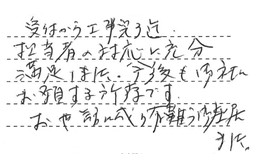 受付から工事完了迄
担当者の対応に充分
満足しました。今後も御社に
お願する予定です
お世話に成り有難う御座居
ました。